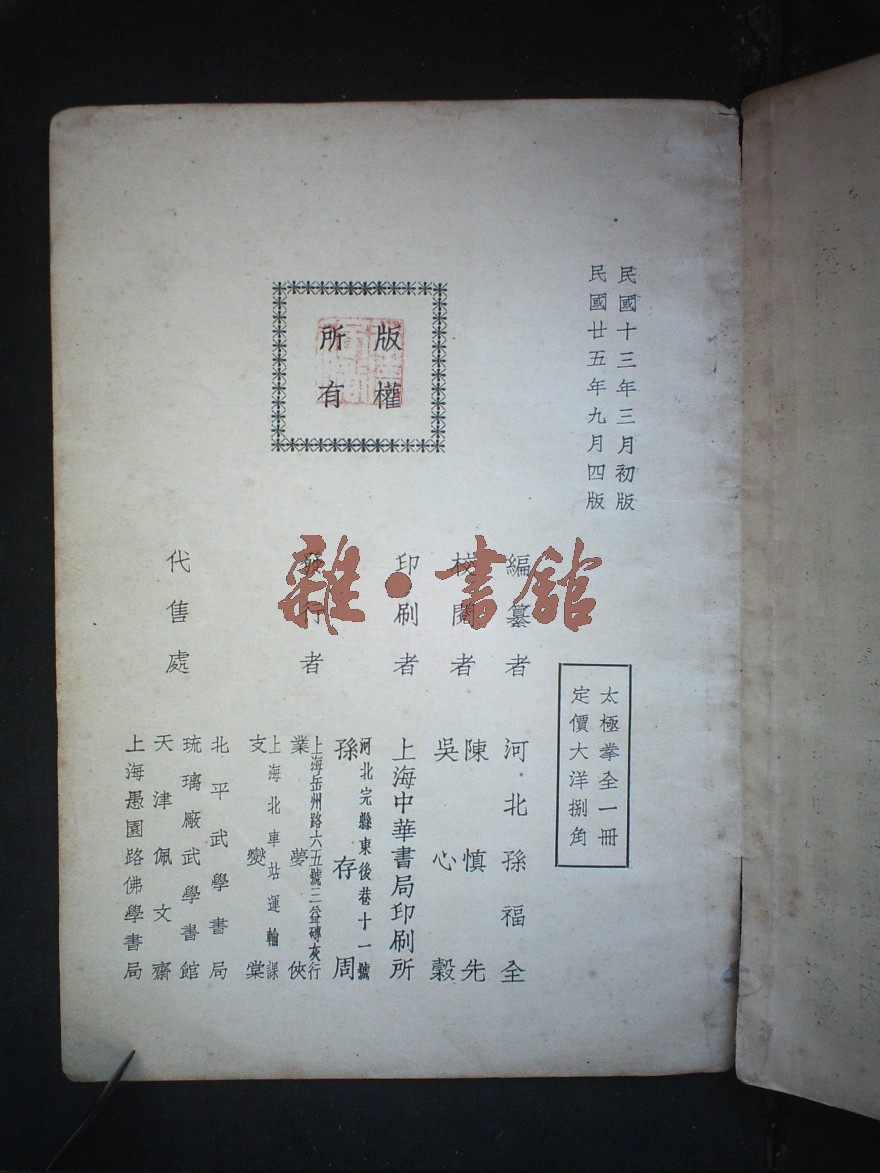 民國十三年三月初版
民國廿五年九月四版
版權
所有
太極拳全一冊
定價大洋捌角
編纂者 河北孫福全
校閱者 陳慎先
吳心穀
印刷者 上海中華書局印刷所
發行者 河北完縣東後巷十一號
孫存周
上海岳州路六五號三益磚灰行
業夢俠
上海北車站運輸課
支燮棠
代售處 北平武學書局
琉璃廠武學書館
天津佩文齋
上海愚園路佛學書局
雜·書館